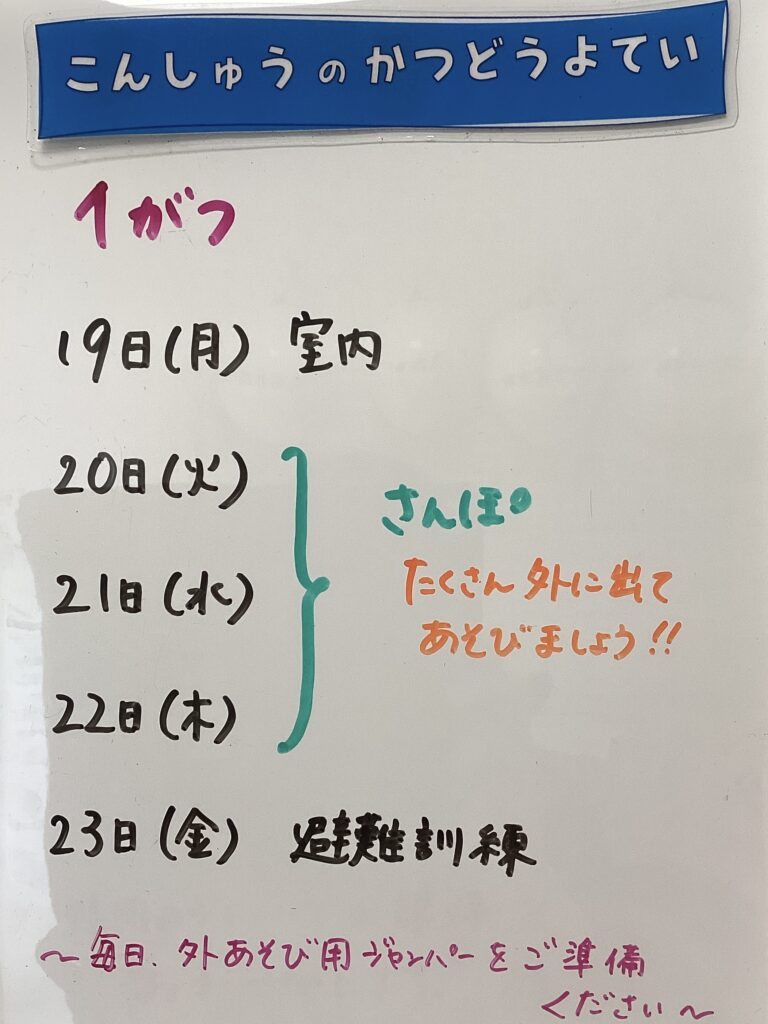 こんしゅうのかつどうよてい
1がつ
19日(月) 室内
20日(火)
21日(水)
22日(木)
さんぽ
たくさん外に出て
あそびましょう!!
23日(金) 避難訓練
〜毎日、外あそび用ジャンパーをご準備
ください〜